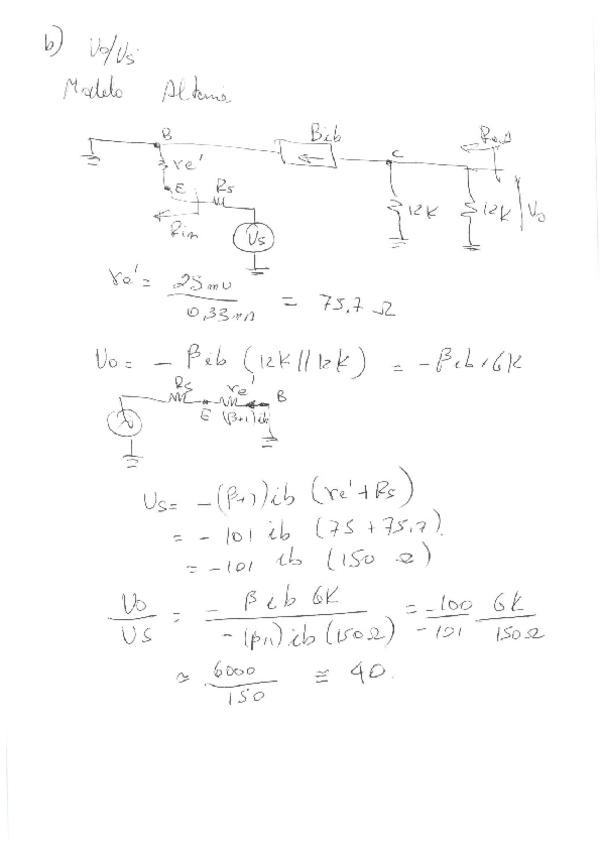 b) Vo/Vs
Modelo Alterna
B
βib
C
Rout
re'
E
Rs
Rin
Vs
12K
12K
Vo
re' = 25mV / 0,33mA = 75,7 Ω
Vo = - βib (12K // 12K) = - βib · 6K
Rs
re'
B
E
(β+1)ib
Vs = -(β+1)ib (re' + Rs)
= - 101 ib (75 + 75,7)
= -101 ib (150 Ω)
Vo / Vs = - βib 6K / -(β+1)ib (150Ω) = -100 / -101 6K / 150Ω
≈ 6000 / 150 ≅ 40.